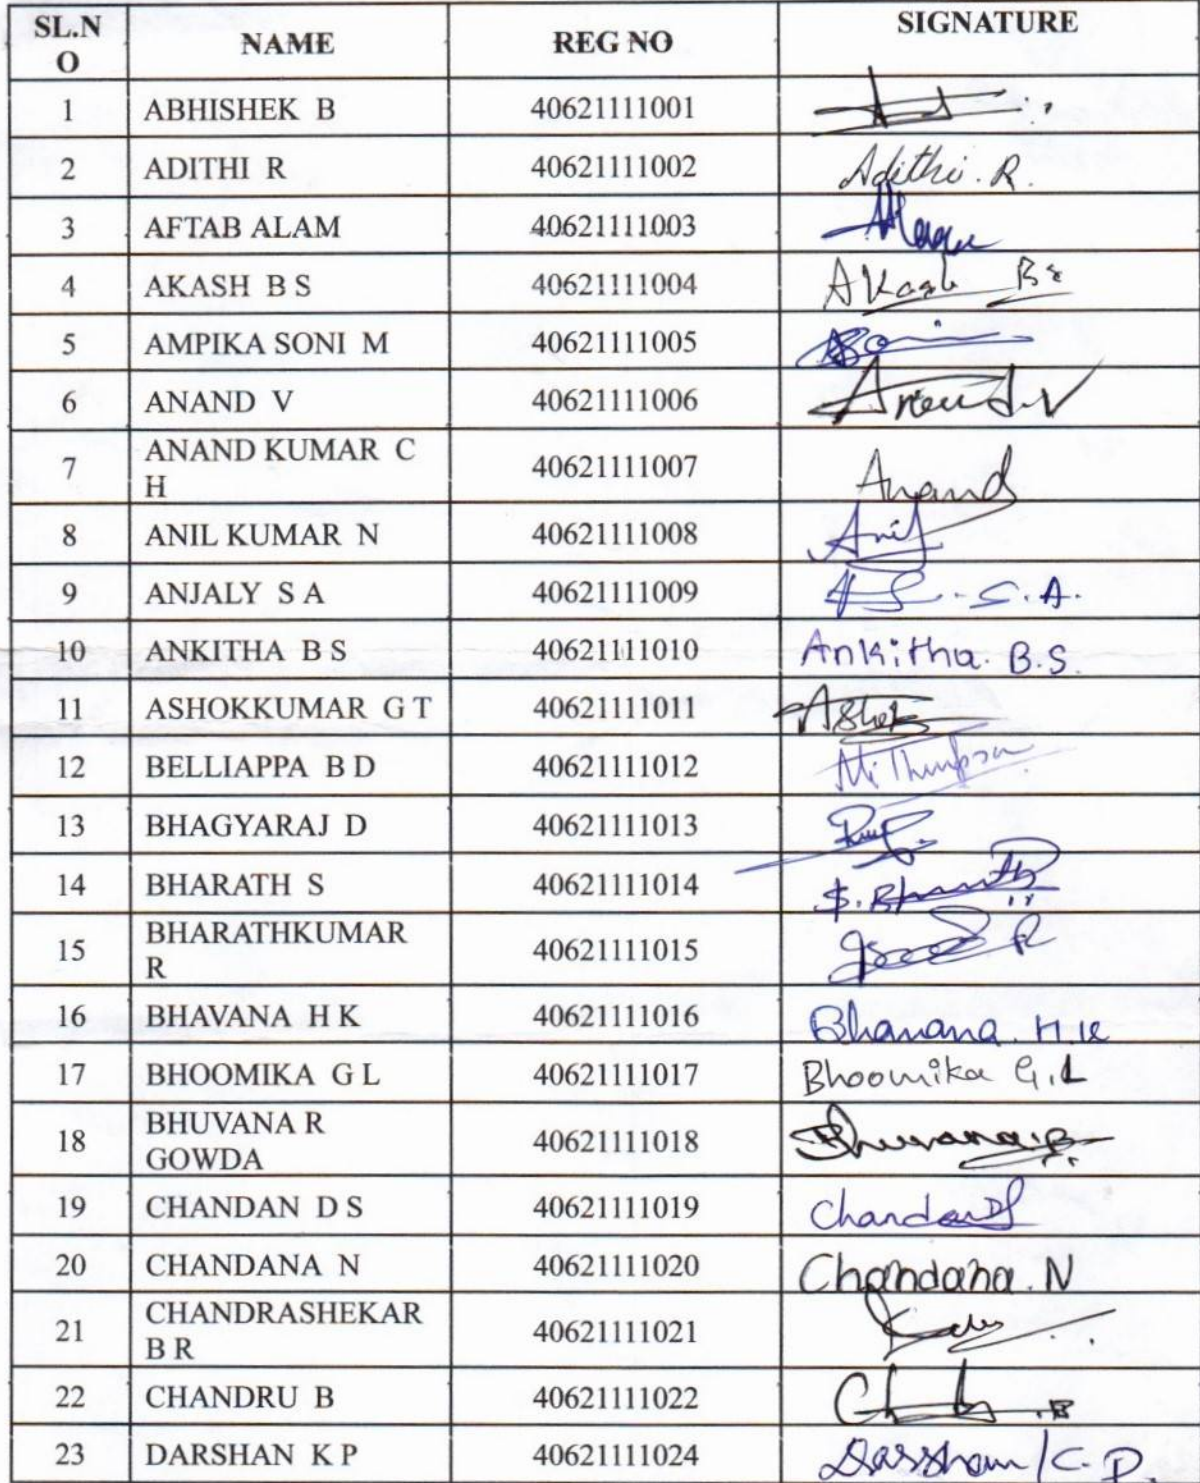 SL.N
O NAME REG NO SIGNATURE
1 ABHISHEK B 40621111001
2 ADITHI R 40621111002 Adithi. R.
3 AFTAB ALAM 40621111003
4 AKASH B S 40621111004 AKash Bs
5 AMPIKA SONI M 40621111005
6 ANAND V 40621111006 Anand.V
7 ANAND KUMAR C
H 40621111007 Anand
8 ANIL KUMAR N 40621111008 Anil
9 ANJALY S A 40621111009 S.A.
10 ANKITHA B S 40621111010 Ankitha. B.S.
11 ASHOKKUMAR G T 40621111011 Ashok
12 BELLIAPPA B D 40621111012
13 BHAGYARAJ D 40621111013
14 BHARATH S 40621111014 S. Bharath
15 BHARATHKUMAR
R 40621111015
16 BHAVANA H K 40621111016 Bhavana. H.K
17 BHOOMIKA G L 40621111017 Bhoomika G.L
18 BHUVANA R
GOWDA 40621111018 Bhuvana.R
19 CHANDAN D S 40621111019 Chandan DS
20 CHANDANA N 40621111020 Chandana. N
21 CHANDRASHEKAR
B R 40621111021
22 CHANDRU B 40621111022
23 DARSHAN K P 40621111024 Darshan K. P.